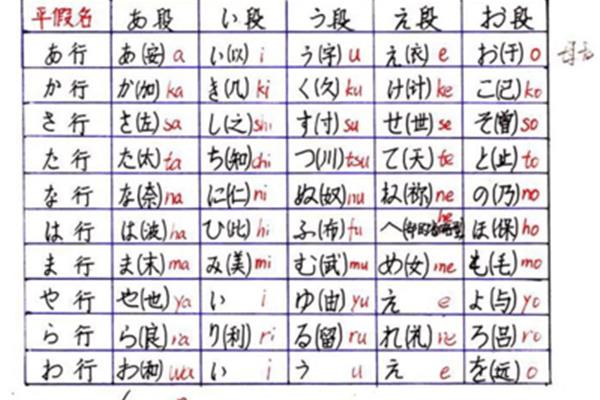 平假名 あ段 い段 う段 え段 お段
あ行 あ(安) a い(以) i う(宇) u え(衣) e お(于) o
か行 か(加) ka き(几) ki く(久) ku け(计) ke こ(己) ko
さ行 さ(左) sa し(之) shi す(寸) su せ(世) se そ(曾) so
た行 た(太) ta ち(知) chi つ(川) tsu て(天) te と(止) to
な行 な(奈) na に(仁) ni ぬ(奴) nu ね(祢) ne の(乃) no
は行 は(波) ha ひ(比) hi ふ(布) fu へ he ほ(保) ho
ま行 ま(末) ma み(美) mi む(武) mu め(女) me も(毛) mo
や行 や(也) ya い i ゆ(由) yu え e よ(与) yo
ら行 ら(良) ra り(利) ri る(留) ru れ(礼) re ろ(吕) ro
わ行 わ(和) wa い i う u え e を(远) o